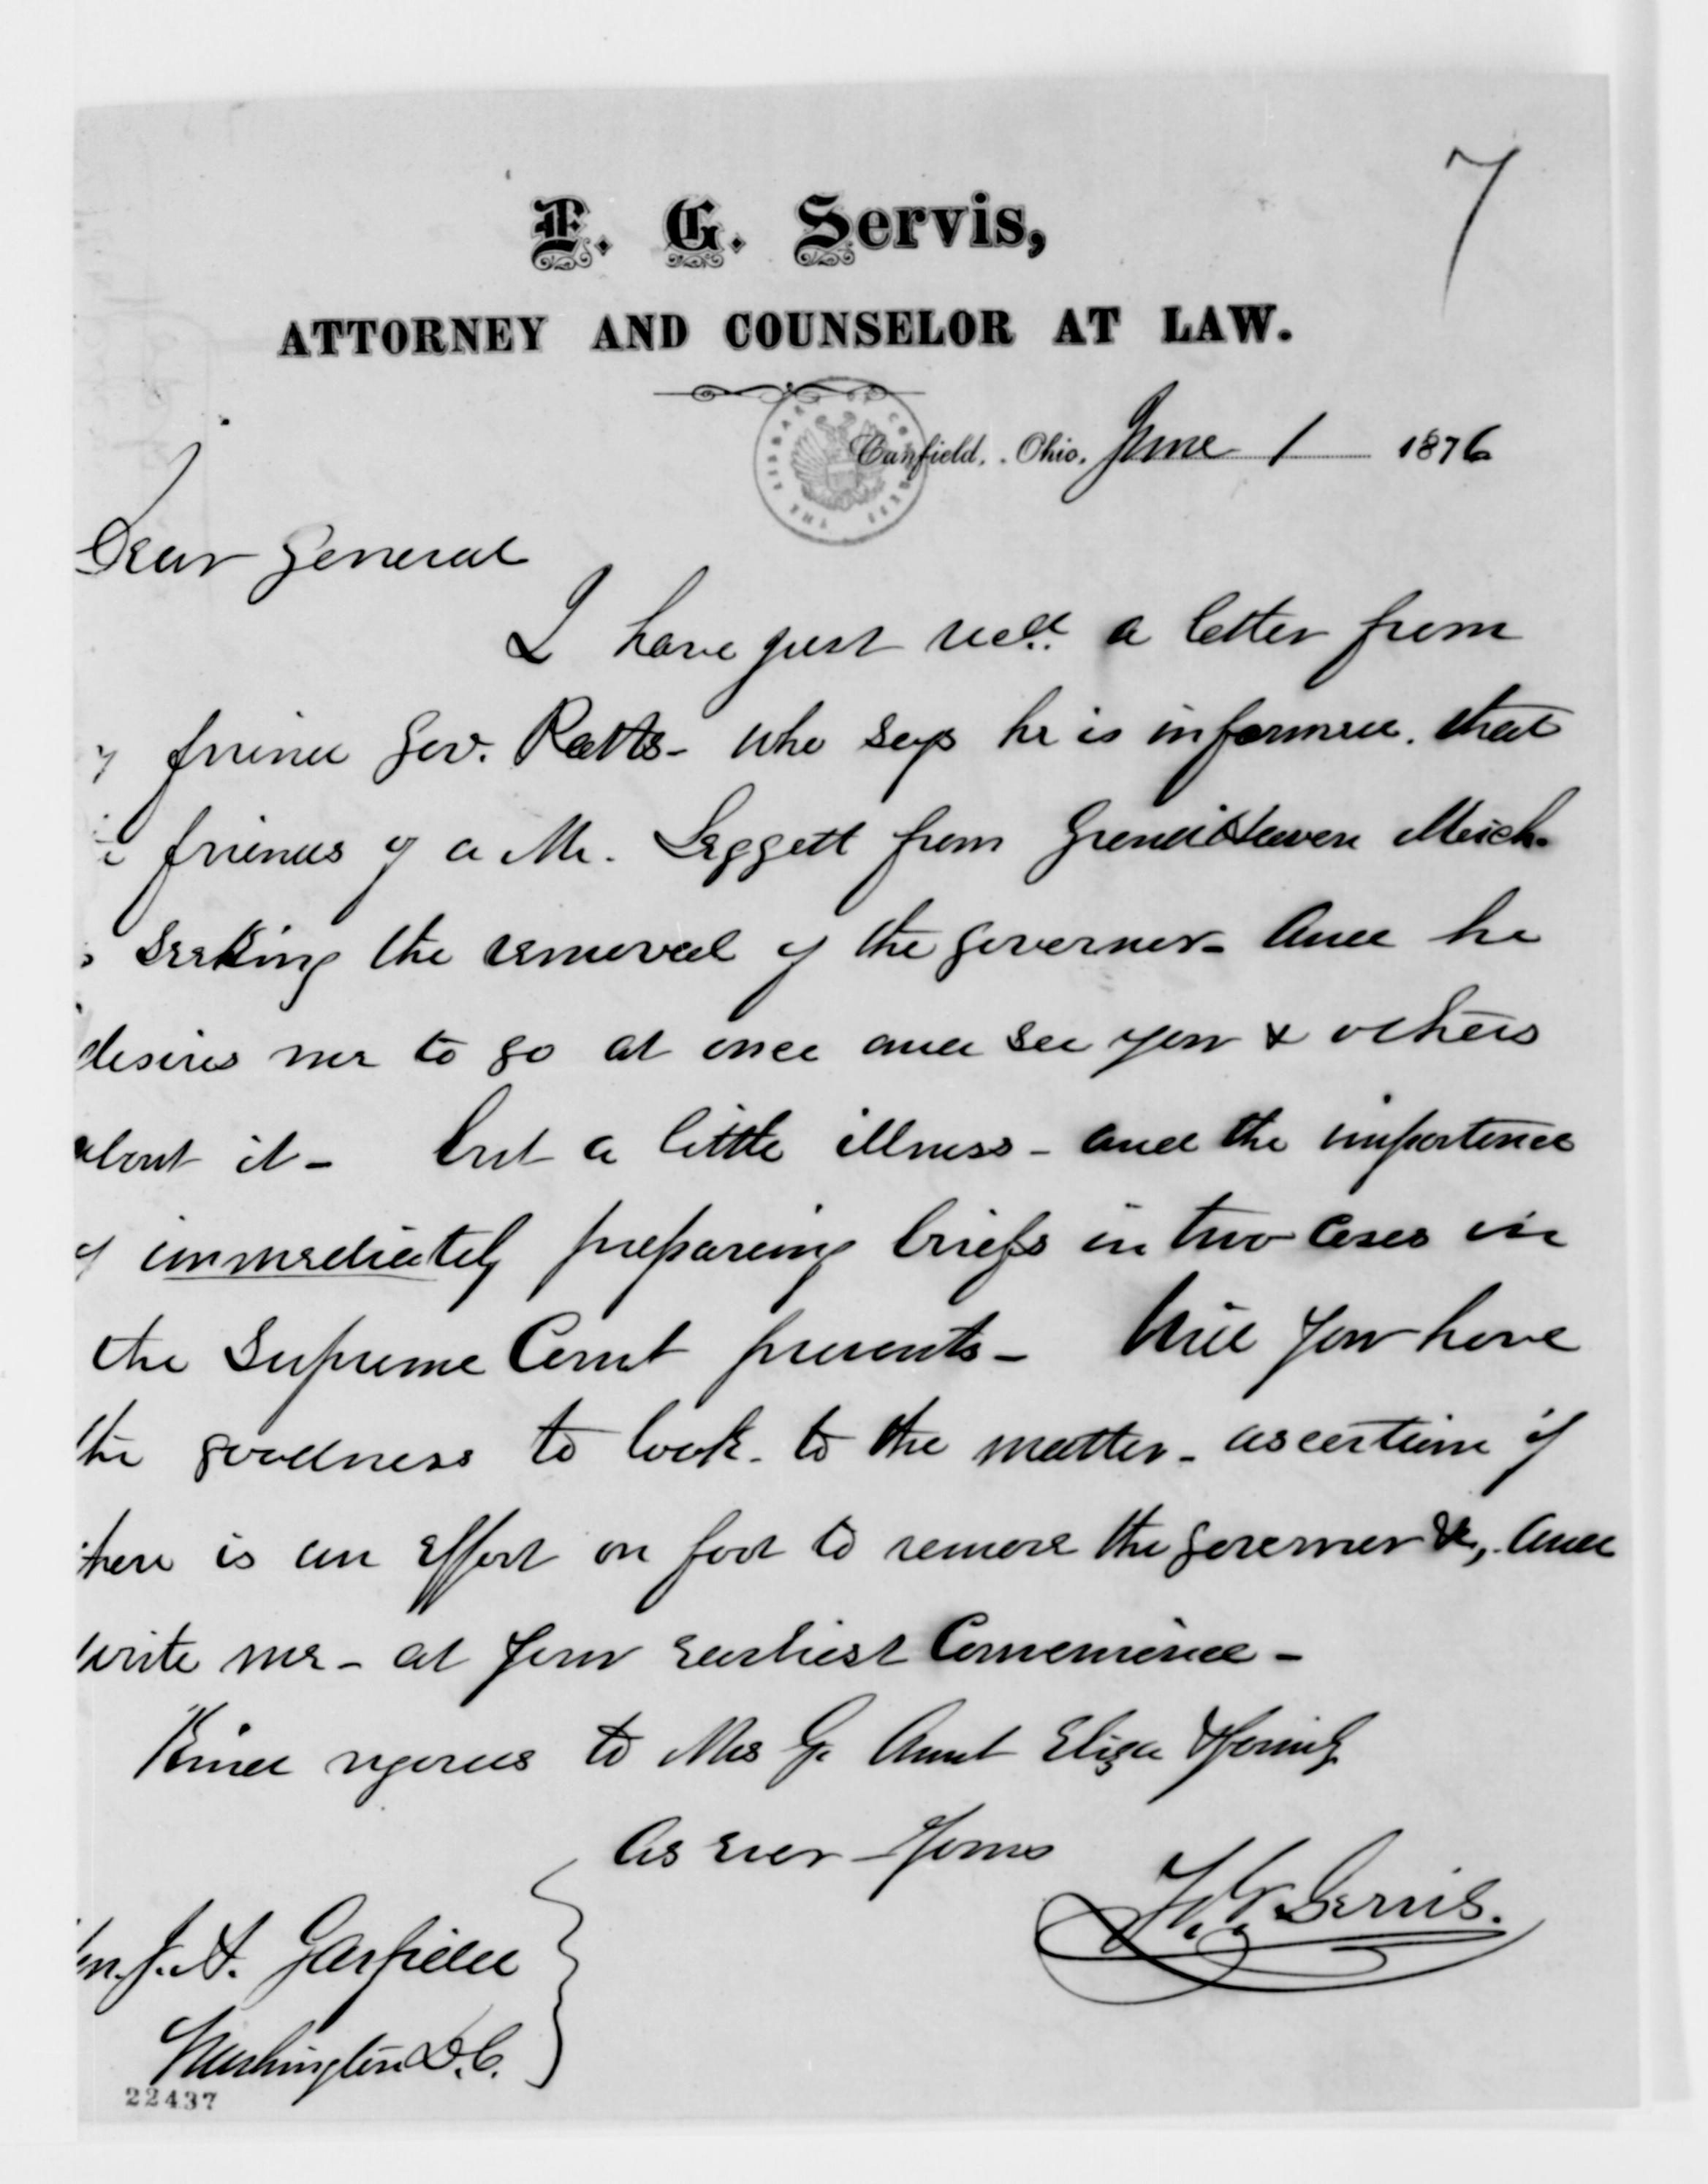 7
F. G. Servis,
ATTORNEY AND COUNSELOR AT LAW.
Canfield, Ohio, June 1 1876
Dear General
I have just recd. a letter from
y friend Gov. Potts - who says he is informed. that
e friends of a Mr. Leggett from Grand Haven Mich.
s seeking the removal of the governor - and he
desires me to go at once and see you & others
about it - but a little illness - and the importance
of immediately preparing briefs in two cases in
the Supreme Court prevents - Will you have
the goodness to look - to the matter - ascertain if
there is an effort on foot to remove the governor &c, and
write me - at your earliest convenience -
Kind regards to Mrs G. Aunt Eliza & family
As ever yours
F. G. Servis.
n. J. A. Garfield
Washington D.C.
22437